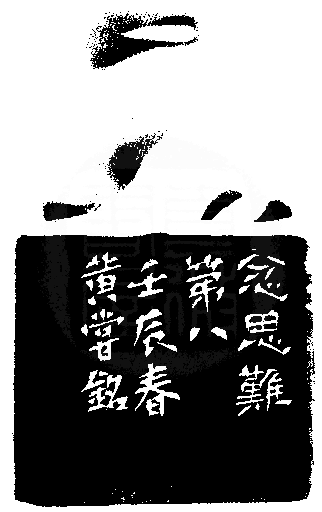 忿思難
第八
壬辰春
黃嘗銘